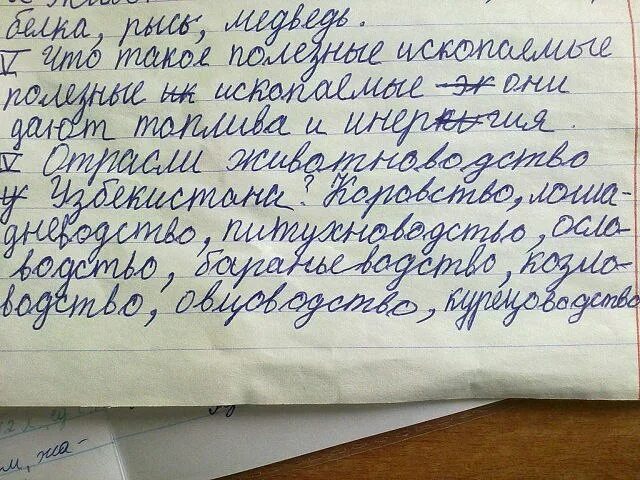 белка, рысь, медведь.
V Что такое полезные ископаемые
полезные ископаемые они
дают топлива и инергия.
V Отрасли животноводство
Узбекистана? Каровство, лоша-
дневодство, питухноводстьо, осло-
водстьо, бараньеводство, козло-
водство, овцоводство, курецоводство
м, жа-